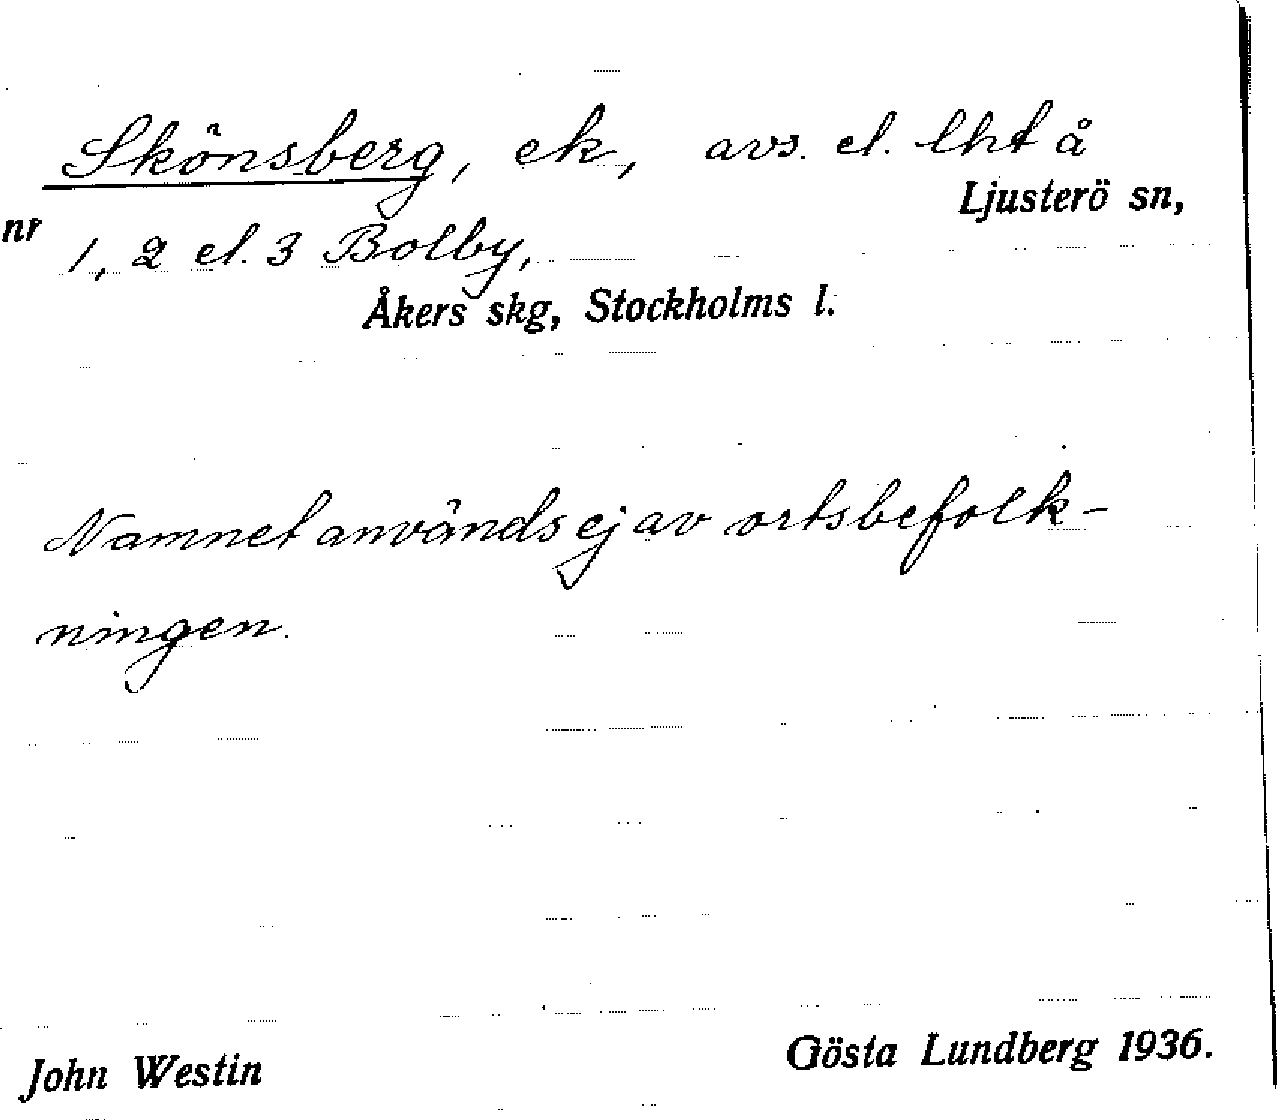 Skönsberg, ek, avs. el. lht å
Ljusterö sn,
nr 1, 2 el. 3 Bolby,
Åkers skg, Stockholms l.
Namnet används ej av ortsbefolk-
ningen.
John Westin
Gösta Lundberg 1936.